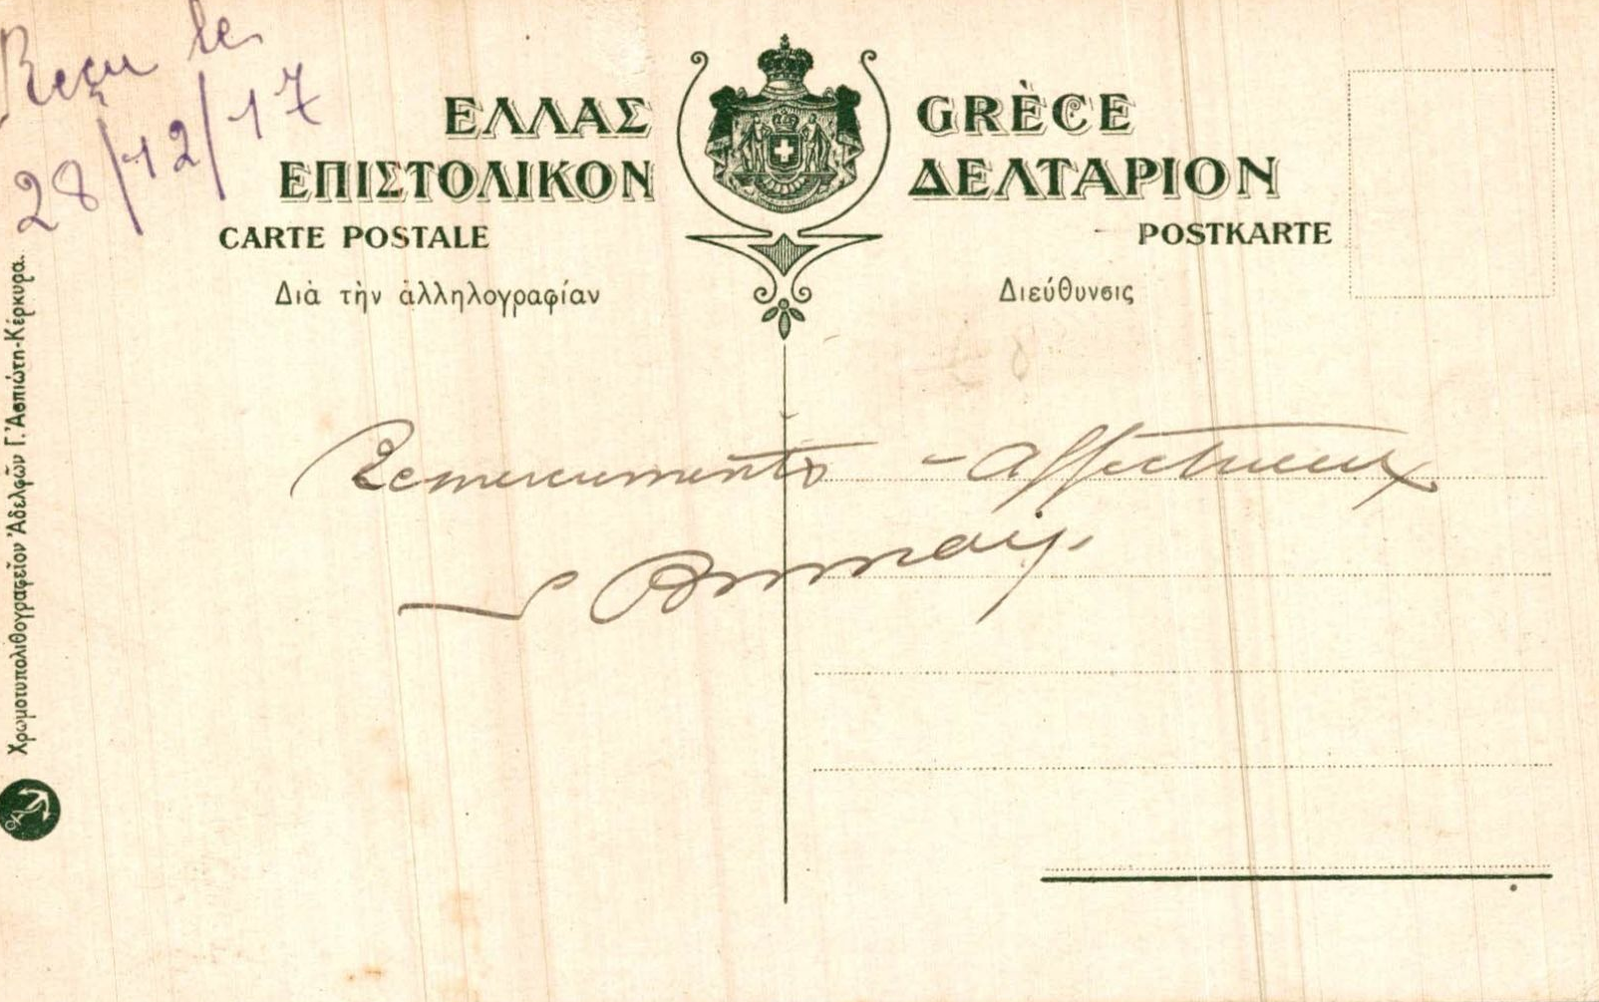 Reçu le
28/12/17
ΕΛΛΑΣ GRÈCE
ΕΠΙΣΤΟΛΙΚΟΝ ΔΕΛΤΑΡΙΟΝ
CARTE POSTALE POSTKARTE
Διὰ τὴν ἀλληλογραφίαν Διεύθυνσις
Remerciements - affectueux
Χρωμοτυπολιθογραφεῖον Ἀδελφῶν Γ. Ἀσπιώτη-Κέρκυρα.